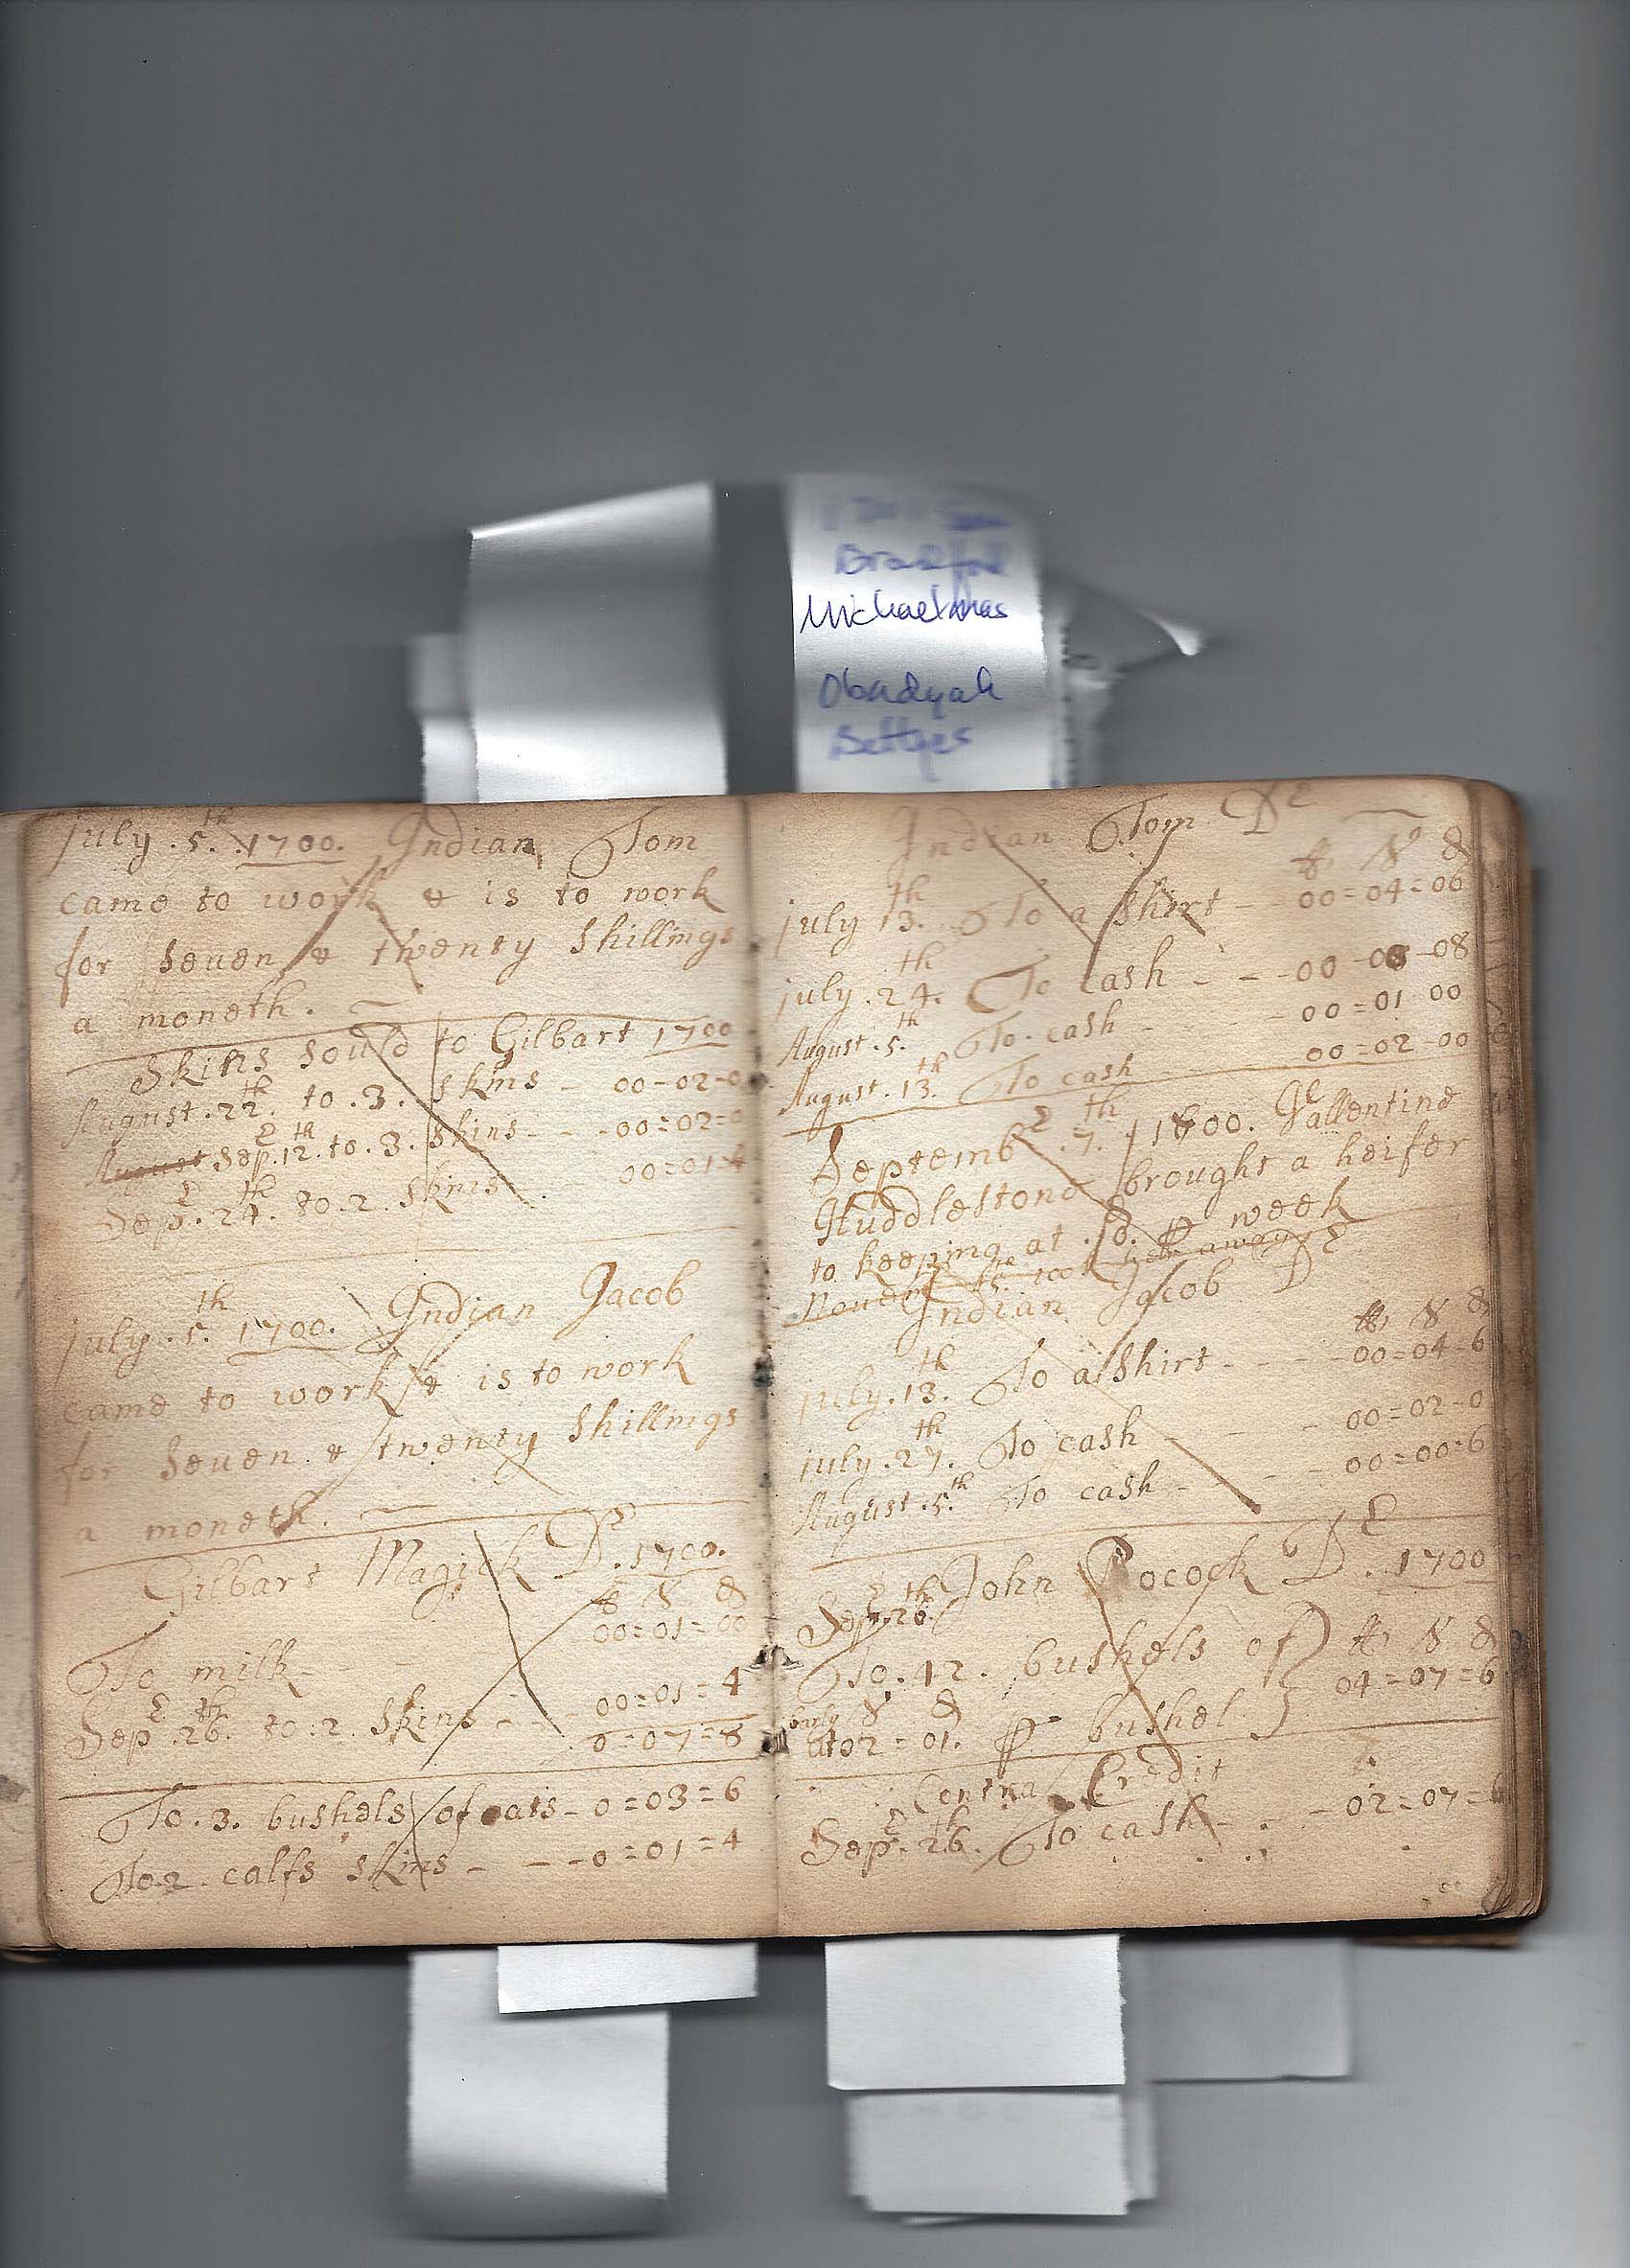 Michaelmas
Obadyah
Bettyes
july . 5.th 1700. Indian Tom
came to work & is to work
for seuen & twenty shillings
a moneth.
Skins sould to Gilbart 1700
August . 22.th to . 3. skins - 00-02-0
August Sepr. 12.th to . 3. skins - - -00=02=0
Sepr. 24.th to . 2. skins 00=01=4
july . 5.th 1700. Indian Jacob
came to work & is to work
for seuen & twenty shillings
a moneth.
Gilbart Magick Dr. 1700.
lb s d
To milk - - - 00=01=00
Sepr. 26.th to . 2. skins - - - 00=01=4
0=07=8
To . 3. bushels of oats - 0=03=6
To 2. calfs skins - - - 0=01=4
Indian Tom Dr
lb s d
july 13.th To a shirt - - 00=04=06
july . 24.th To cash - - -00 -08
August . 5.th To cash - - 00=01 00
August . 13.th To cash 00=02-00
Septembr . 7.th 1700. Vallentine
Huddlestone brought a heifer
to keeping at . 8d. per week
Nouem took away
Indian Jacob Dr
lb s d
july . 13.th To a shirt - - - -00=04-6
july . 27.th To cash - - - 00=02-0
August . 5.th To cash - - - - 00=00=6
John Pocock Dr. 1700
Sepr. 26.th
To . 42. bushels of lb s d
barly s d 04=07=6
at 02=01. per bushel
Contra Credit lb
Sepr. 26.th To cash - - - 02=07=6